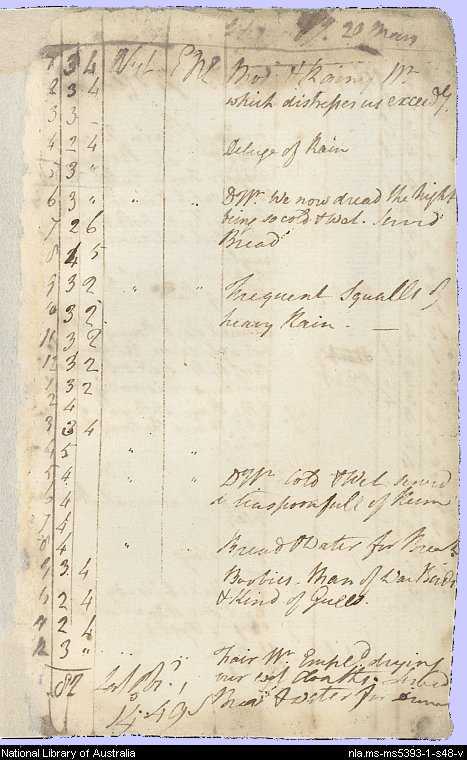 20
1 3 4 Mod. & Rainy Wr.
2 3 4 which distresses us exceedgy.
3 3 –
4 2 4 Deluge of Rain
5 3 "
6 3 " " " DWr. We now dread the Night
7 2 6 being so cold & Wet. Served
8 4 5 Bread
9 3 2 " " Frequent Squalls of
10 3 2 heavy Rain. —
11 3 2
12 3 2
1 3 2
2 4
3 3 4
4 5 " "
5 4 " " DWr. Cold & Wet served
6 4 a teaspoonfull of Rum
7 4
8 4 " " Bread & Water for
9 3 4 Boobies. Man of War Birds
2 4 & Kind of Gulls.
2 4
12 3 " Fair Wr. Empld. drying
82 our wet cloaths. Served
14.49 S & water for
National Library of Australia
nla.ms-ms5393-1-s48-v